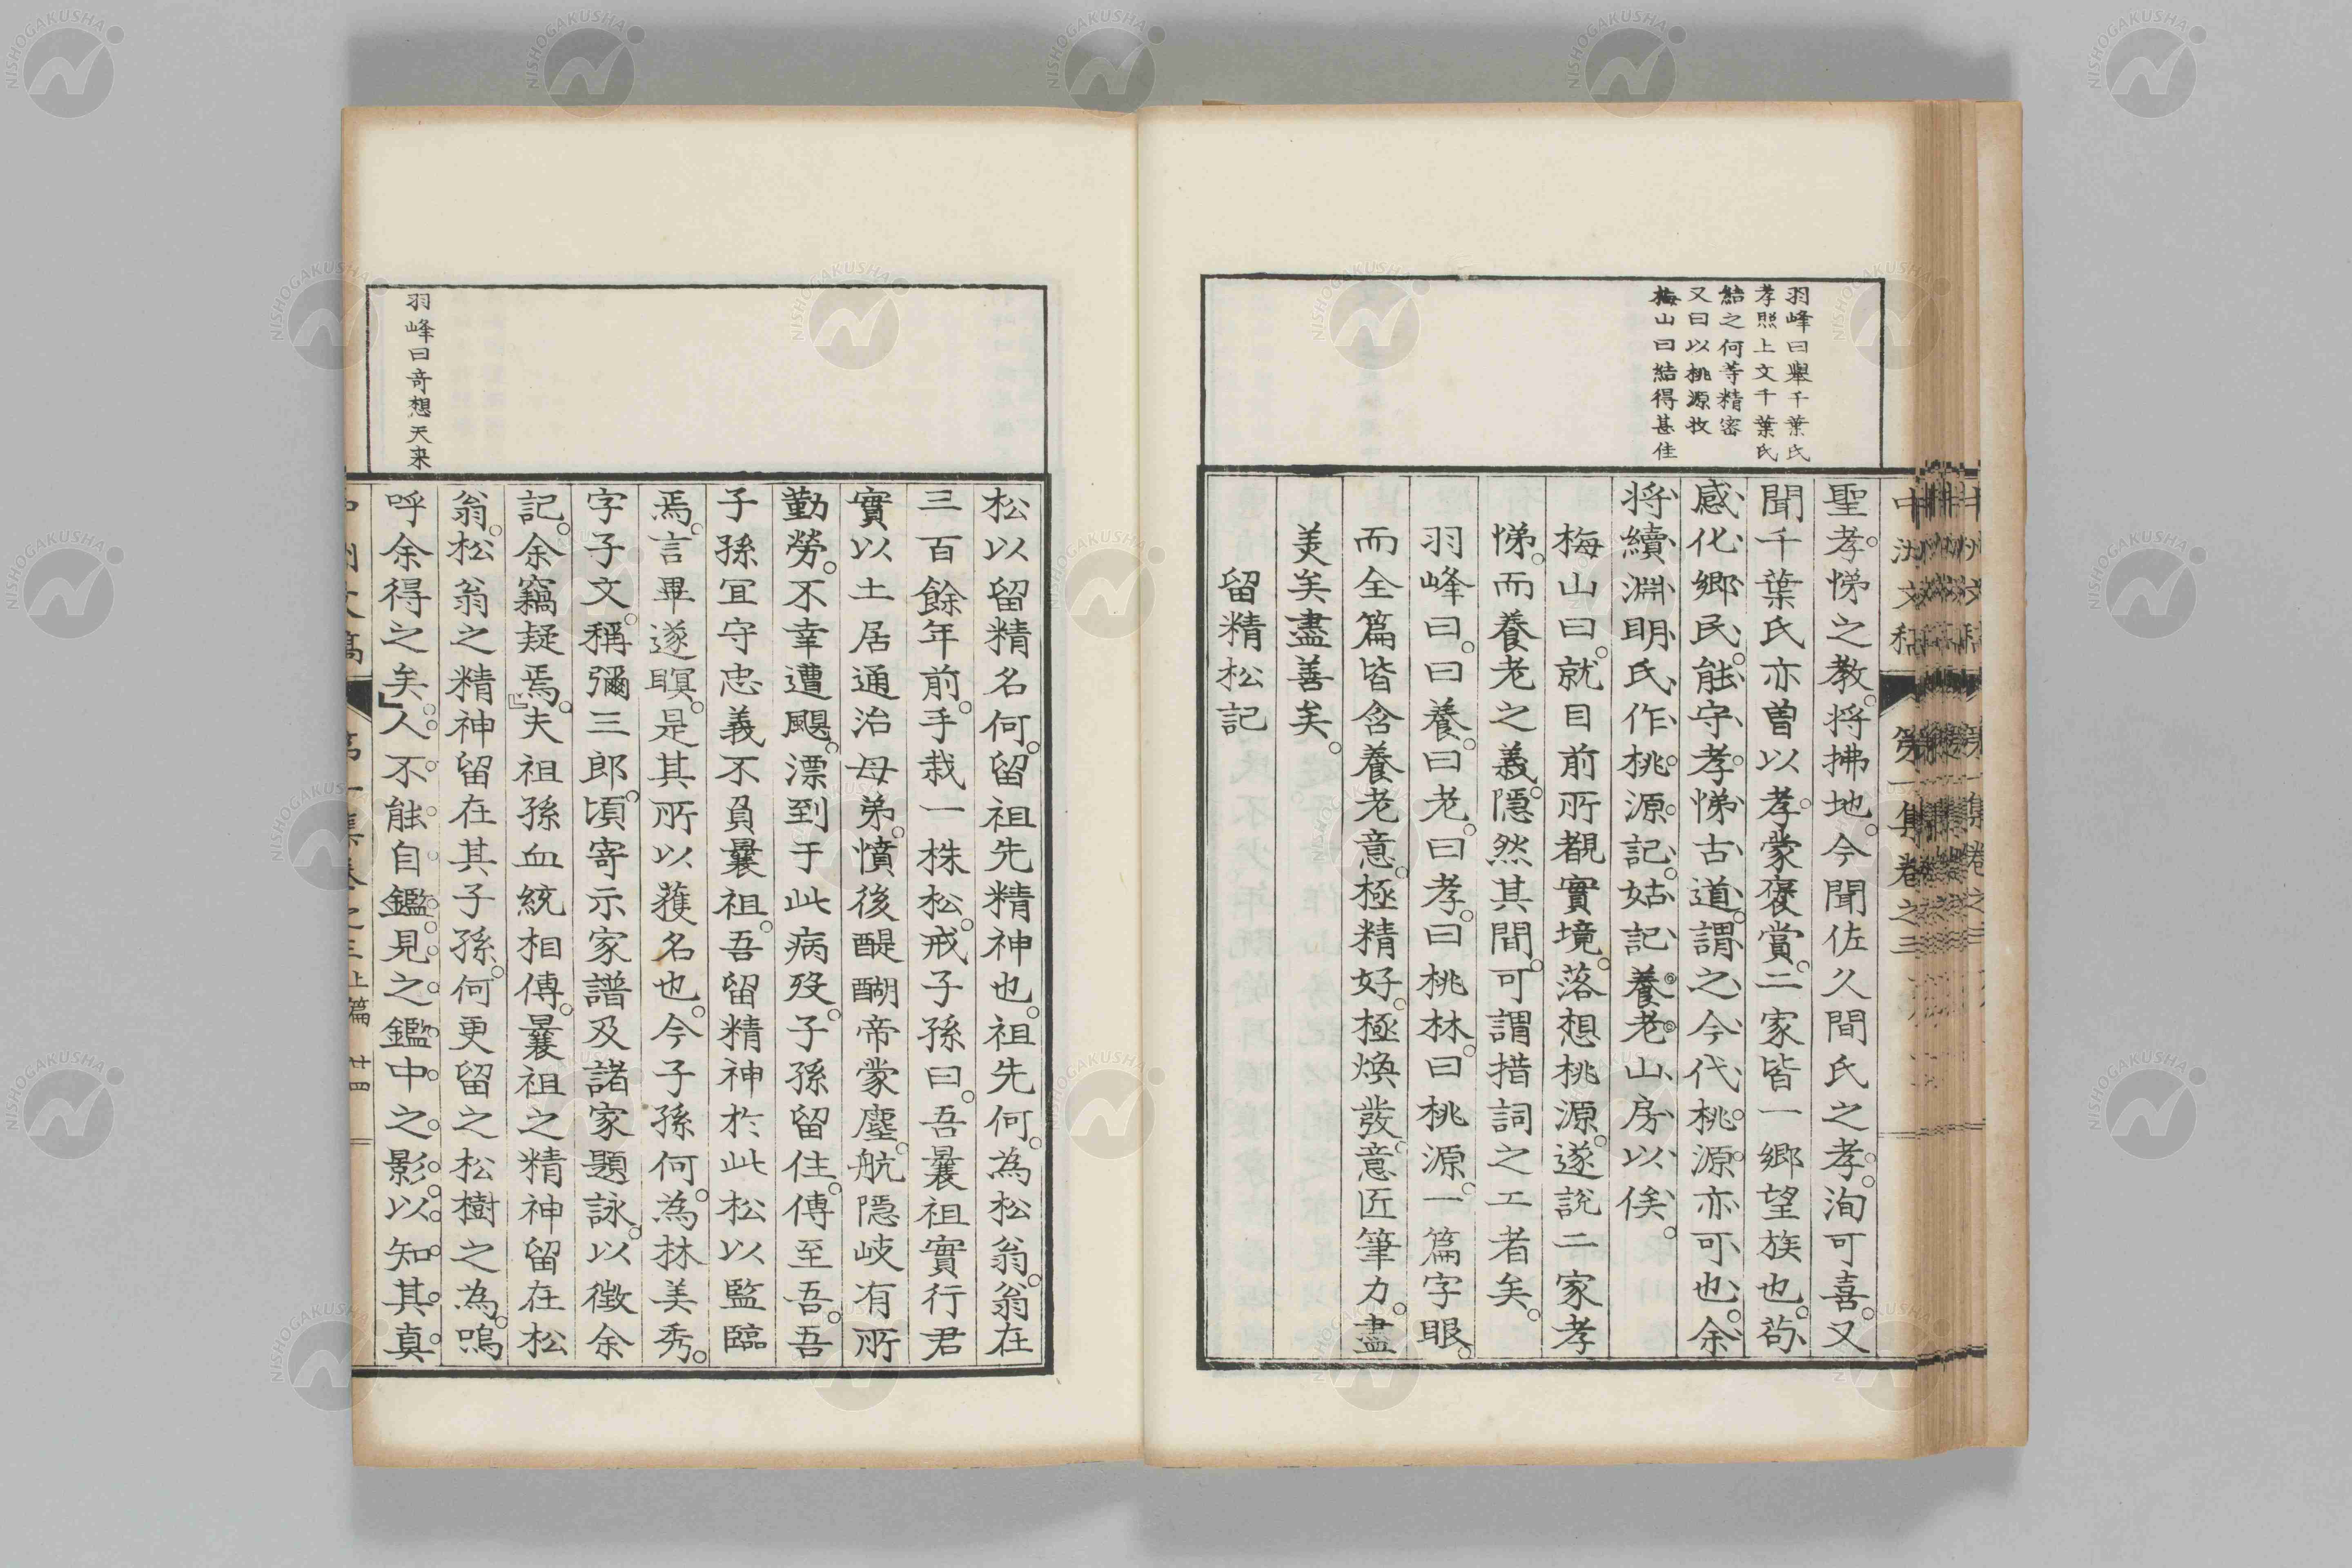 羽峰曰擧千葉氏
孝照上文千葉氏
結之何等精密
又曰以桃源收
梅山曰結得甚佳
聖孝悌之教。将拂地。今聞佐久間氏之孝。洵可喜。又
聞千葉氏亦曽以孝蒙褒賞。二家皆一郷望族也。苟
感化郷民。能守孝悌古道。謂之今代桃源亦可也。余
将續淵明氏作桃源記。姑記養老山房以俟。
梅山曰。就目前所覩實境。落想桃源。遂説二家孝
悌。而養老之義。隠然其間。可謂措詞之工者矣。
羽峰曰。曰養。曰老。曰孝。曰桃林。曰桃源。一篇字眼。
而全篇皆含養老意。極精好。極煥發。意匠筆力。盡
美矣盡善矣。
留精松記
松以留精名何。留祖先精神也。祖先何。為松翁。翁在
三百餘年前。手栽一株松。戒子孫曰。吾曩祖實行君
實以土居通治母弟。憤後醍醐帝蒙塵。航隠岐有所
勤勞。不幸遭颶。漂到于此病歿。子孫留住。傳至吾。吾
子孫宜守忠義不負曩祖。吾留精神於此松以監臨
焉。言畢遂瞑。是其所以獲名也。今子孫何。為林美秀。
字子文。稱彌三郎。頃寄示家譜及諸家題詠。以徴余
記。余竊疑焉。』夫祖孫血統相傳。曩祖之精神留在松
翁。松翁之精神留在其子孫。何更留之松樹之為。嗚
呼余得之矣。』人不能自鑑。見之鑑中之影。以知其真
羽峰曰奇想天来
第一集卷之三上篇 廿四